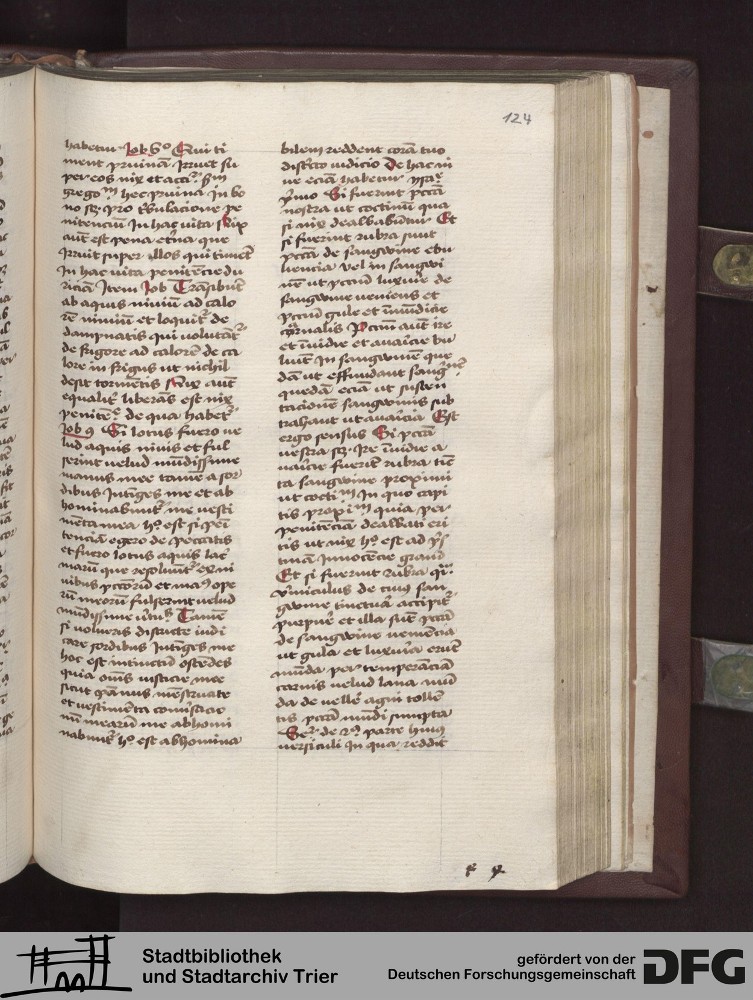 124
habetur Job 6º Qui ti
ment pruinam irruet su
per eos nix et accꝰ. scdm
gregoᵐ hec pruina in bo
no sz. pro tribulacione pe
nitencium In hac uita
aut est pena eterna que
irruit super illos qui timent
In hac uita penitencie du
riciam Item Job Transibunt
ab aquis niuium ad calo
rem nimium et loquitur de
dampnatis qui voluntur
de frigore ad calorem de ca
lore in frigus ut nichil
desit tormentis Nix aut
equaliter liberans est nix
penitencie de qua habetur
Job 9 Si lotus fuero ve
lud aquis niuis et ful
serint velud mundissime
manus mee tamen a sor
dibus intinges me et ab
hominabuntur me vesti
menta mea hº. est si peni
tenciam egero de peccatis
et fuero lotus aquis lac
marum que resoluuntur ex ni
uibus peccatorum et manus ope
rum meorum fulserint velud
mundissime uirtus Tamen
si volueris districte iudi
care sordibus intinges me
hoc est intinctum ostendes
quia omnes iusticie mee
sicut pannus menstruate
et vestimenta
num mearum me abhomi
nabuntur hº est abhomina
bilem reddent coram tuo
districto iudicio De hac ni
ue eciam habetur ysaie
primo Si fuerint peccata
nostra ut coccinum qua
si nix dealbabuntur Et
si fuerint rubra sunt
peccata de sanguine ebu
liencia vel in sangwi
nem ut peccatum luxurie de
sangwine veniens et
peccatum gule et inmundicie
carnalis Peccatum autem ire
et inuidie et auaricie bu
liunt in sangwinem que
dam ut effundant sangwinem
quedam eciam ut susten
tacionem sangwinis sub
trahant ut auaricia Est
ergo sensus Si peccata
vestra sz. Ire inuidie a
uaricie fuerint rubra tinc
ta sangwine proximi
ut coccinum In quo capi
tis proprium quia per
penitenciam dealbati eri
tis ut nix hº. est ad pris
tinam innocencie graciam
Et si fuerint rubra quasi
vermiculus de cuius san
gwine tinctura accipitur
purpure et illa sunt peccata
de sangwine veniencia
ut gula et luxuria erunt
munda per temperanciam
carnis velud lana mun
da de vellere agni tollen
tis peccatum mundi sumpta
Sequitur de 2ª parte huius
versiculi In qua reddit
Stadtbibliothek
und Stadtarchiv Trier
gefördert von der
Deutschen Forschungsgemeinschaft
DFG